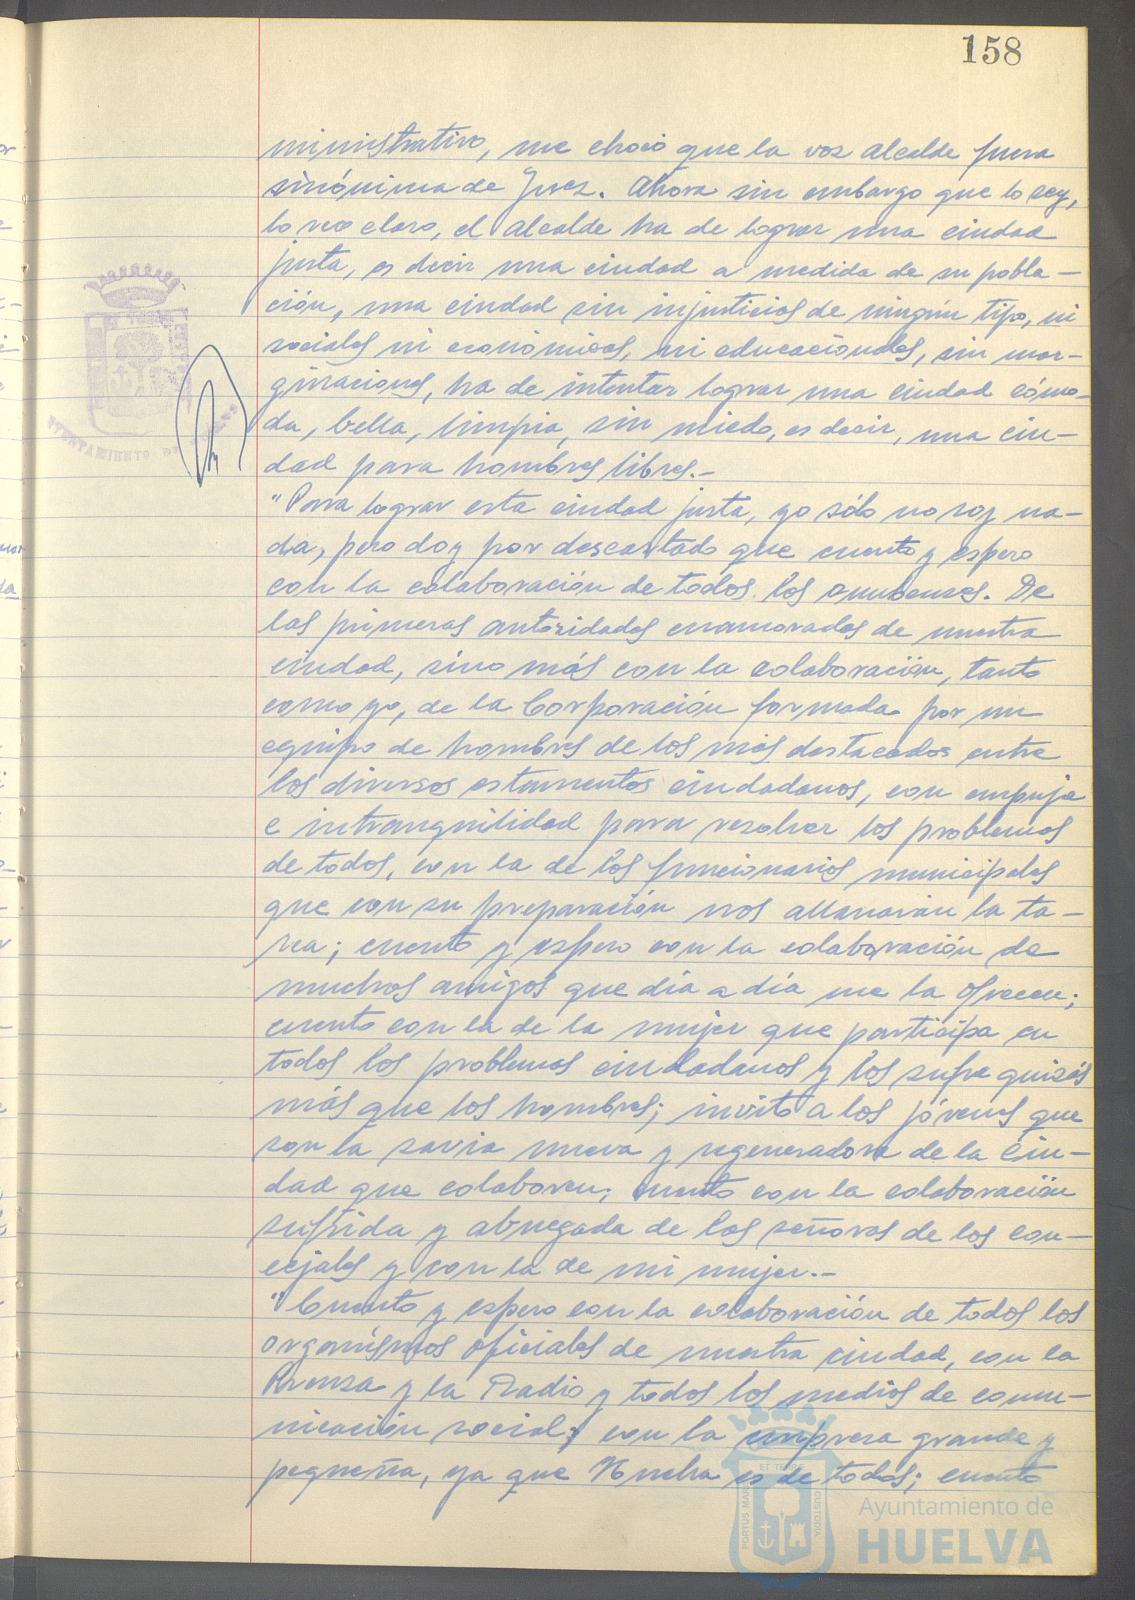 158
ministrativo, me chocó que la voz alcalde fuera
sinónima de Juez. Ahora sin embargo que lo soy,
lo veo claro, el alcalde ha de lograr una ciudad
justa, es decir una ciudad a medida de su pobla-
ción, una ciudad sin injusticias de ningún tipo, ni
sociales ni económicas, ni educacionales, sin mar-
ginaciones, ha de intentar lograr una ciudad cómo-
da, bella, limpia, sin miedo, es decir, una ciu-
dad para hombres libres.-
"Para lograr esta ciudad justa, yo sólo no soy na-
da, pero doy por descartado que cuento y espero
con la colaboración de todos los onubenses. De
las primeras autoridades enamorados de nuestra
ciudad, sino más con la colaboración, tanto
como yo, de la Corporación formada por un
equipo de hombres de los más destacados entre
los diversos estamentos ciudadanos, con empuje
e intranquilidad para resolver los problemas
de todos, con la de los funcionarios municipales
que con su preparación nos allanarán la ta-
rea; cuento y espero con la colaboración de
muchos amigos que día a día me la ofrecen;
cuento con la de la mujer que participa en
todos los problemas ciudadanos y los sufre quizás
más que los hombres; invito a los jóvenes que
son la savia nueva y regeneradora de la ciu-
dad que colaboren; cuento con la colaboración
sufrida y abnegada de las señoras de los con-
cejales y con la de mi mujer.-
"Cuento y espero con la colaboración de todos los
organismos oficiales de nuestra ciudad, con la
Prensa y la Radio y todos los medios de comu-
nicación social; con la empresa grande y
pequeña, ya que Huelva es de todos; cuento
AYUNTAMIENTO DE HUELVA
PORTUS MARIS ET TERRE CUSTODIA
Ayuntamiento de
HUELVA